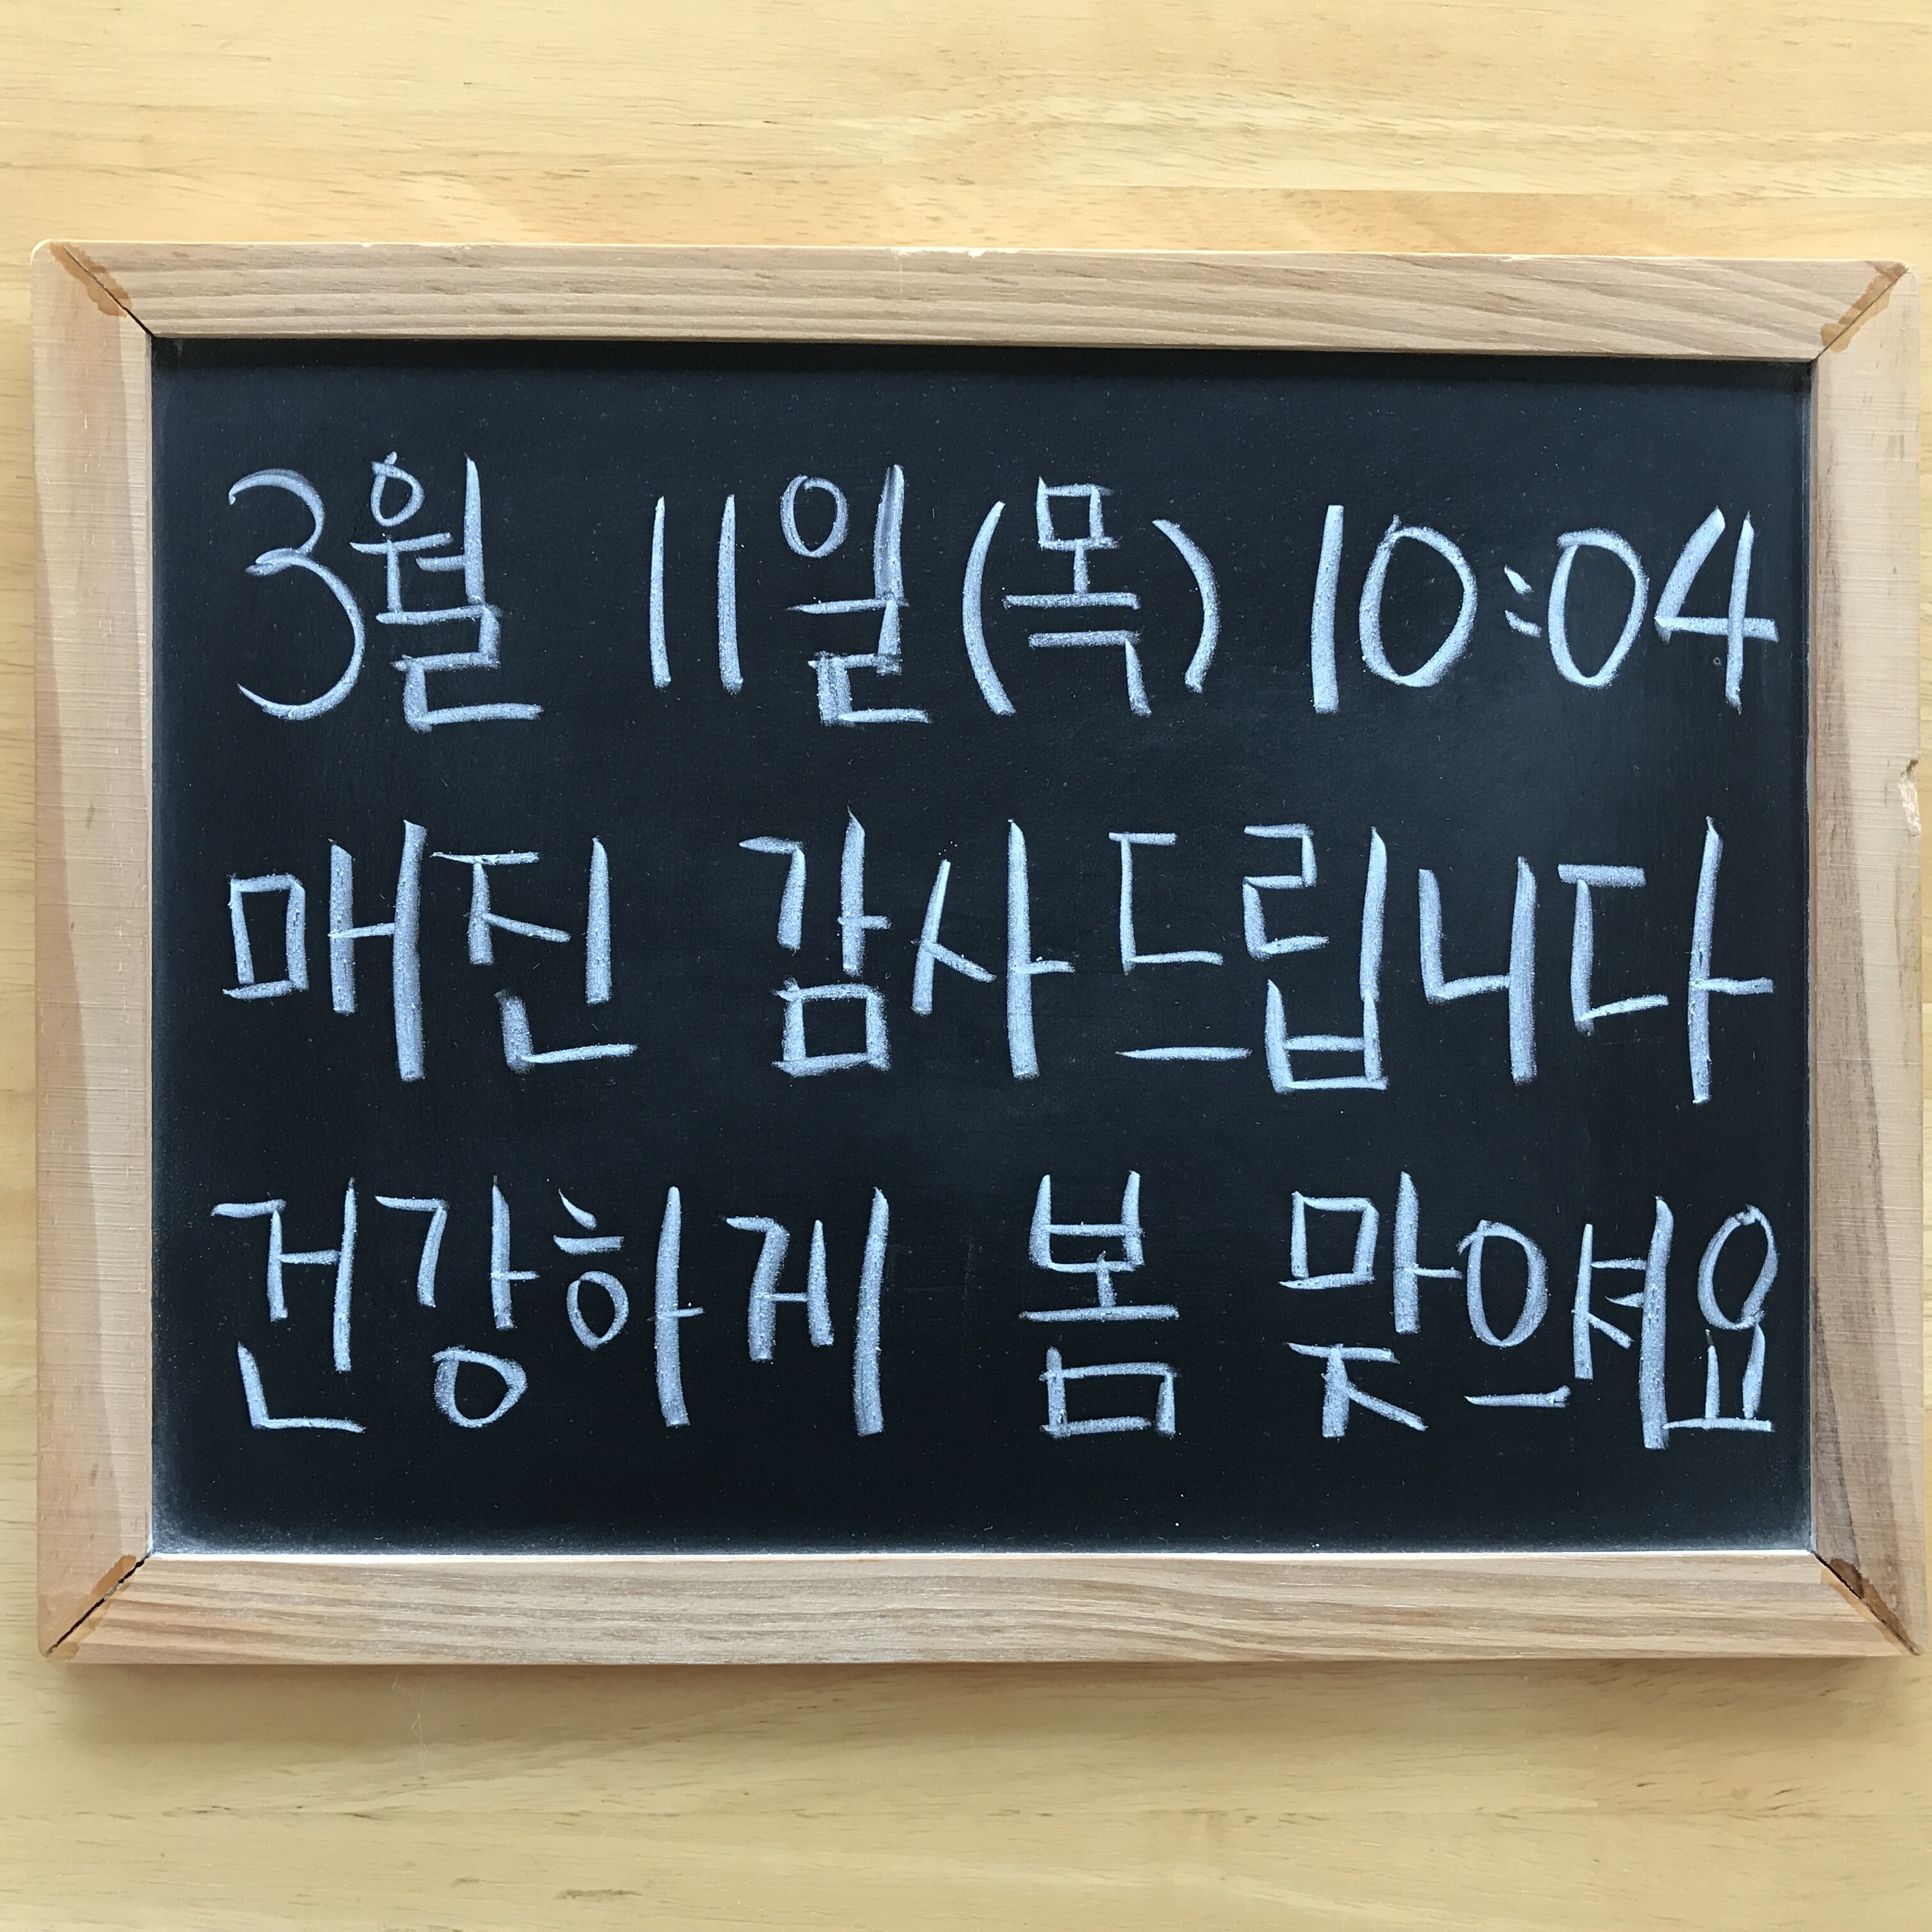 3월 11일(목) 10:04
매진 감사드립니다
건강하게 봄 맞으셔요